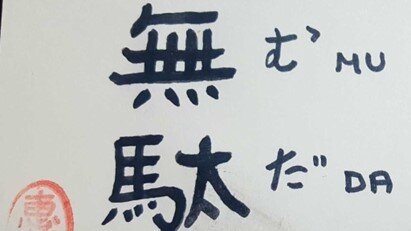 無 む MU
駄 だ DA
恵